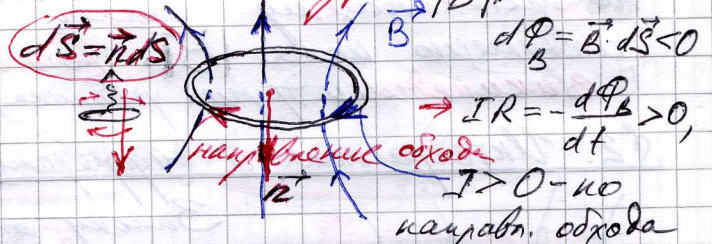 dS⃗ = n⃗dS
B⃗
dΦ_B = B⃗·dS⃗ < 0
→ IR = -dΦ_B/dt > 0,
направление обхода
n⃗
I > 0 - по
направл. обхода